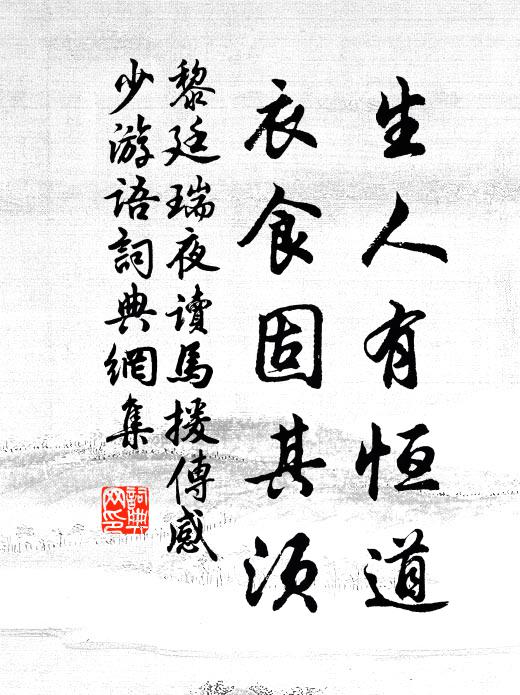 生人有恒道
衣食固其須
黎廷瑞夜讀馬援傳感
少游語詞典網集
詞典網印